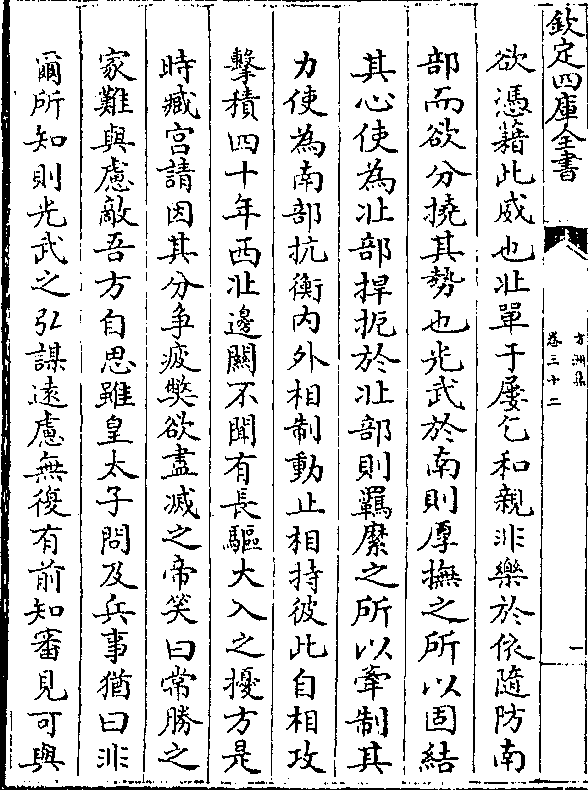 欽定四庫全書
方洲集
卷三十二
一
欲憑藉此威也北單于屢乞和親非樂於依隨防南
部而欲分撓其勢也光武於南則厚撫之所以固結
其心使為北部捍扼於北部則羈縻之所以牽制其
力使為南部抗衡内外相制動止相持彼此自相攻
擊積四十年西北邊關不聞有長驅大入之擾方是
時臧宫請因其分争疲弊欲盡滅之帝笑曰常勝之
家難與慮敵吾方自思雖皇太子問及兵事猶曰非
爾所知則光武之弘謀遠慮無復有前知審見可與